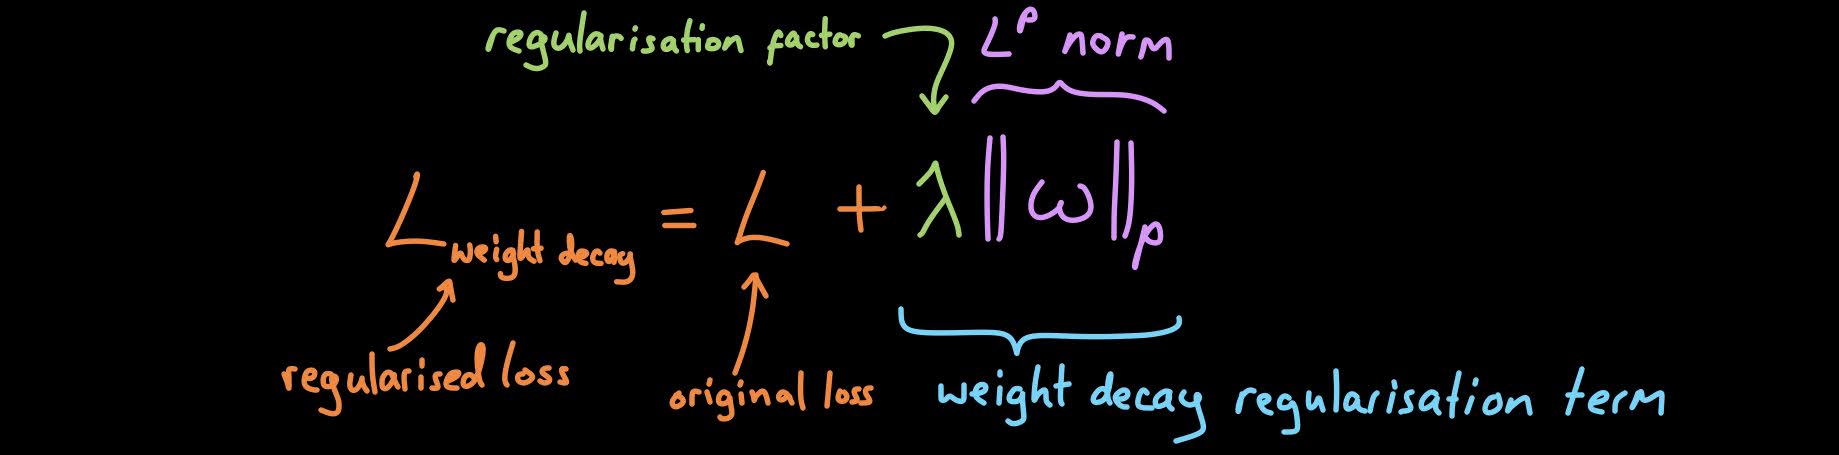 regularisation factor
L^p norm
L_weight decay = L + λ‖ω‖_p
regularised loss
original loss
weight decay regularisation term